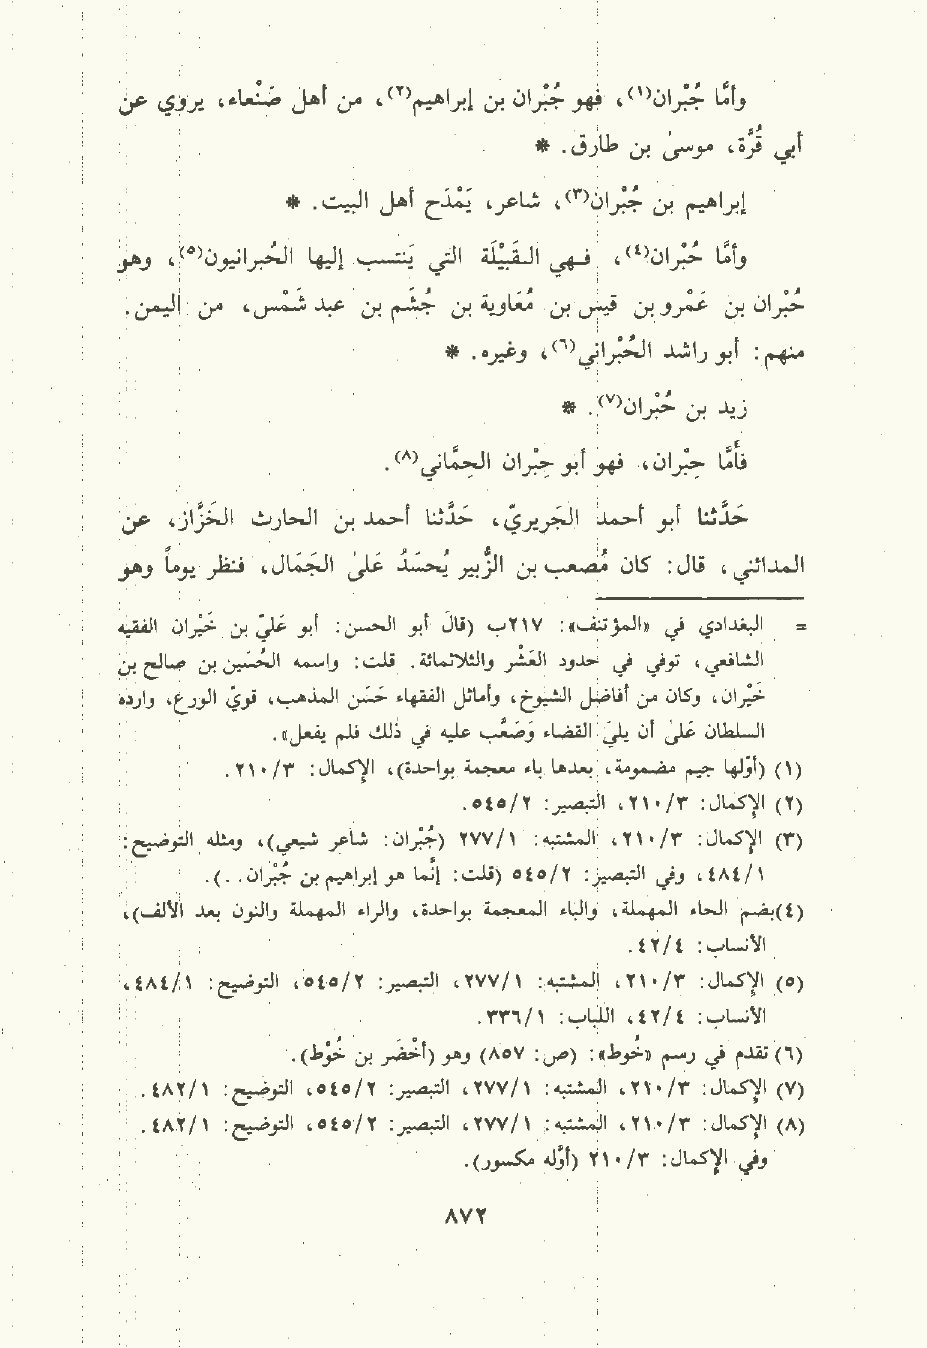 وأمَّا جُبْران(١)، فهو جُبْران بن إبراهيم(٢)، من أهل صَنْعاء، يروي عن
أبي قُرَّة، موسىٰ بن طارق. *
إبراهيم بن جُبْران(٣)، شاعر، يَمْدَح أهل البيت. *
وأمَّا حُبْران(٤)، فهي القَبِيْلَة التي يَنتسب إليها الحُبرانيون(٥)، وهو
حُبْران بن عَمْرو بن قيس بن مُعَاوية بن جُشَم بن عبد شَمْس، من اليمن.
منهم: أبو راشد الحُبْراني(٦)، وغيره. *
زيد بن حُبْران(٧). *
فأمَّا جِبْران، فهو أبو جِبْران الحِمَّاني(٨).
حَدَّثنا أبو أحمد الجَريريّ، حَدَّثنا أحمد بن الحارث الخَزَّاز، عن
المدائني، قال: كان مُصعب بن الزُّبير يُحسَدُ عَلىٰ الجَمَال، فنظر يوماً وهو
= البغدادي في «المؤتنف»: ٢١٧ب (قالَ أبو الحسن: أبو عَليّ بن خَيْران الفقيه
الشافعي، توفي في حدود العَشْر والثلاثمائة. قلت: واسمه الحُسَين بن صالح بن
خَيْران، وكان من أفاضل الشيوخ، وأماثل الفقهاء حَسَن المذهب، قويّ الورع، واراده
السلطان عَلىٰ أن يليَ القضاء وَصَعَّب عليه في ذلك فلم يفعل».
(١) (أوّلها جيم مضمومة، بعدها باء معجمة بواحدة)، الإكمال: ٢١٠/٣.
(٢) الإكمال: ٢١٠/٣، التبصير: ٥٤٥/٢.
(٣) الإكمال: ٢١٠/٣، المشتبه: ٢٧٧/١ (جُبْران: شاعر شيعي)، ومثله التوضيح:
٤٨٤/١، وفي التبصير: ٥٤٥/٢ (قلت: إنَّما هو إبراهيم بن جُبْران. .).
(٤)بضم الحاء المهملة، والباء المعجمة بواحدة، والراء المهملة والنون بعد الألف)،
الأنساب: ٤٢/٤.
(٥) الإكمال: ٢١٠/٣، المشتبه: ٢٧٧/١، التبصير: ٥٤٥/٢، التوضيح: ٤٨٤/١،
الأنساب: ٤٢/٤، اللباب: ٣٣٦/١.
(٦) تقدم في رسم «خُوط»: (ص: ٨٥٧) وهو (أخْضَر بن خُوْط).
(٧) الإكمال: ٢١٠/٣، المشتبه: ٢٧٧/١، التبصير: ٥٤٥/٢، التوضيح: ٤٨٢/١.
(٨) الإكمال: ٢١٠/٣، المشتبه: ٢٧٧/١، التبصير: ٥٤٥/٢، التوضيح: ٤٨٢/١.
وفي الإكمال: ٢١٠/٣ (أوَّله مكسور).
٨٧٢